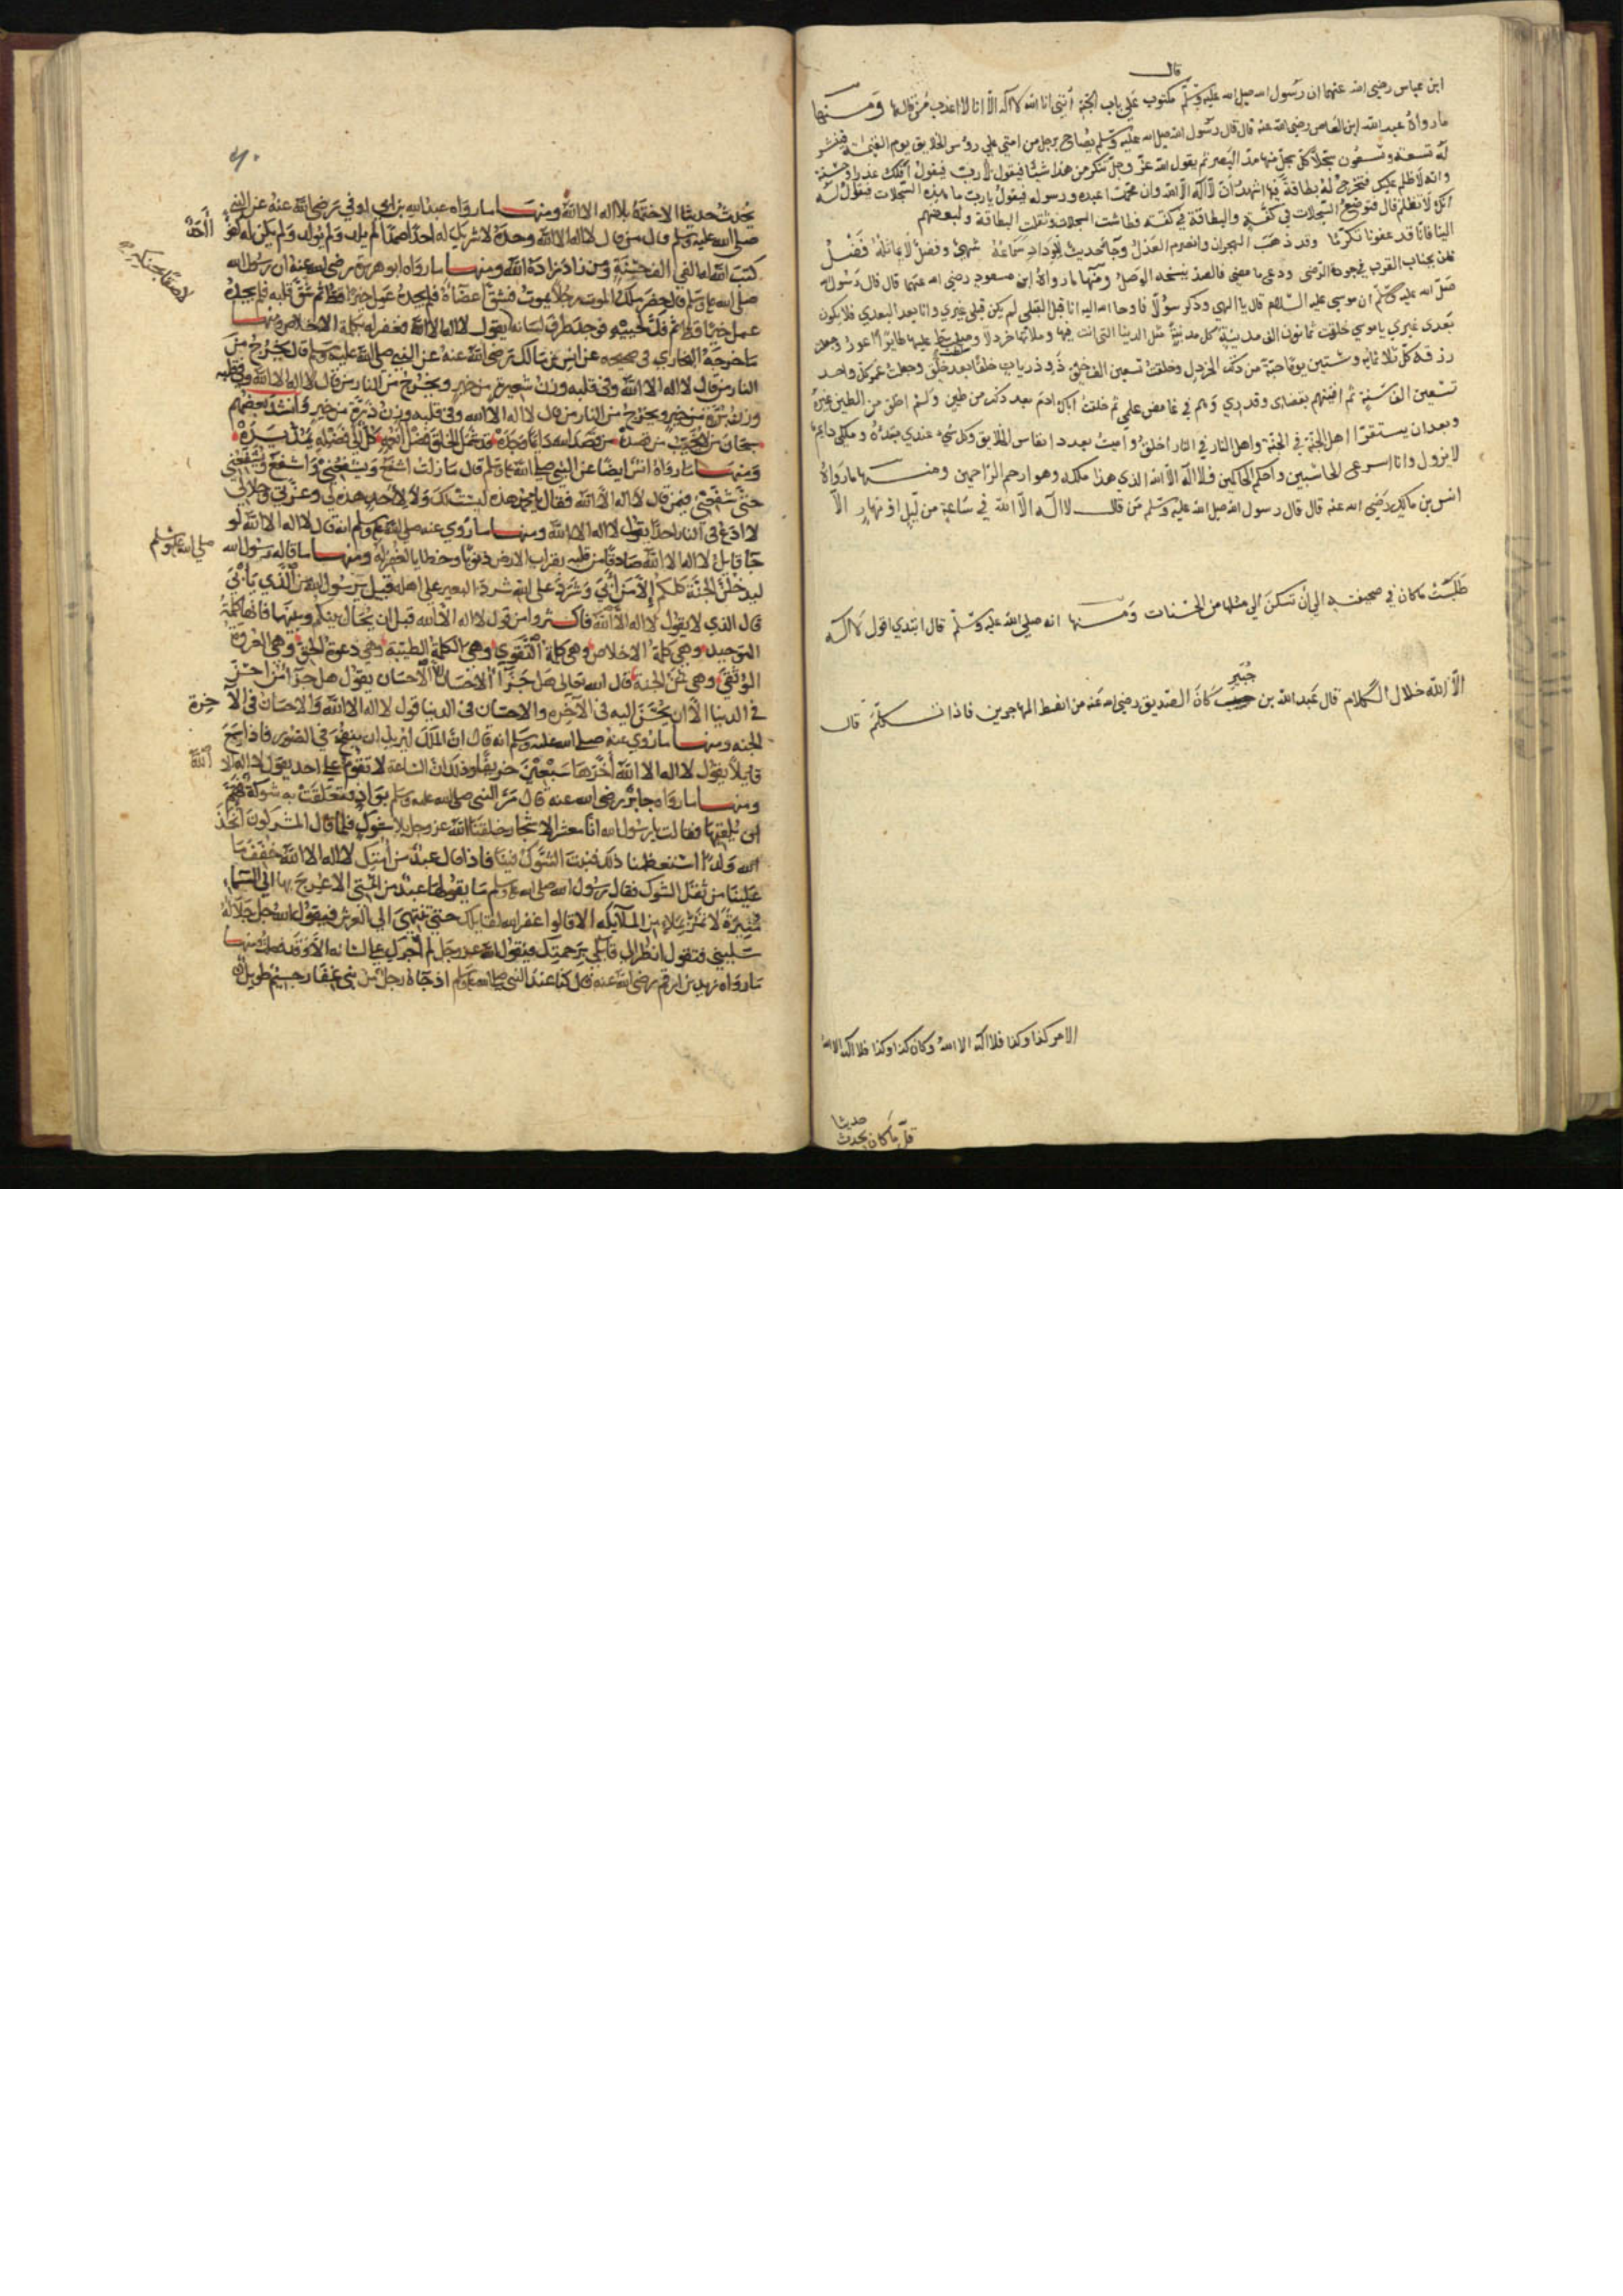 قال
ابن عباس رضي الله عنهما ان رسول الله صلى الله عليه وسلم مكتوب على باب الجنة انني انا الله لا اله الا انا لا اعذب من قالها ومنها
ما رواه عبد الله ابن العاص رضي الله عنه قال قال رسول الله صلى الله عليه وسلم يصاح برجل من امتي على رؤس الخلايق يوم القيمة فينشر
له تسعة وتسعون سجلا كل سجل منها مد البصر ثم يقول الله عز وجل تنكر من هذا شيئا فيقول لا رب فيقول افلك عذر او حسنة
وانه لا ظلم عليك فتخرج له بطاقة فيها اشهد ان لا اله الا الله وان محمدا عبده ورسوله فيقول يا رب ما هذه السجلات فيقول له
انك لا تظلم قال فتوضع السجلات في كفة والبطاقة في كفة فطاشت السجلات وثقلت البطاقة ولبعضهم
الينا فانا قد عفونا تكرما وقد ذهب الهجران وانصرم العذل وجا حديث
الوصل ومنها ما رواه ابن مسعود رضي الله عنهما قال قال رسول الله
صلى الله عليه وسلم ان موسى عليه السلام قال يا الهي وذكر سؤلا فاوحا الله اليه انا قبل القبل لم يكن قبلي غيري وانا بعد البعد فلا يكون
بعدي غيري يا موسى خلقت ثمانون الف مدينة كل مدينة مثل الدنيا التي انت فيها وملاتها خردلا
رزقه كل ثلاثمائة وستين يوما حبة من ذلك الخردل وخلقت تسعين الف خلق ذو ذريات خلقا بعد خلق وجعلت عمر كل واحد
تسعين الف سنة ثم افنيتهم بقضاي وقدري وهم في غامض علمي ثم خلقت اباك ادم بعد ذلك من طين ولم اخلق من الطين غيره
وبعد ان يستقر اهل الجنة في الجنة واهل النار في النار اخلق واميت بعدد انفاس الخلايق وكل شيء عندي بقدره وملكي دايما
لا يزول وانا اسرع الحاسبين واحكم الحاكمين فلا اله الا الله الذي هذا ملكه وهو ارحم الراحمين ومنها ما رواه
انس بن مالك رضي الله عنه قال قال رسول الله صلى الله عليه وسلم من قال لا اله الا الله في ساعة من ليل او نهار الا
طلست ما كان في صحيفته الى ان تسكن الى مثلها من الحسنات ومنها انه صلى الله عليه وسلم قال ابتدي اقول لا اله
جبير
الا الله خلال الكلام قال عبد الله بن كان الصديق رضي الله عنه من انشط المهاجرين فاذا تكلم قال
الامر كذا وكذا فلا اله الا الله وكان كذا وكذا فلا اله الا الله
حديثا
قل ما كان يحدث
يحدث حديثا الا ختمه بلا اله الا الله ومنها ما رواه عبد الله بن ابي اوفى رضي الله عنه عن النبي
صلى الله عليه وسلم قال من قال لا اله الا الله وحده لا شريك له احدا صمدا لم يلد ولم يولد ولم يكن له كفوا
كتب الله له الفي الف حسنة ومن زاد زاده الله ومنها ما رواه ابو هريرة رضي الله عنه ان رسول الله
صلى الله عليه وسلم قال حضر ملك الموت رجلا يموت فشق اعضاه فلم يجده عمل خيرا قط ثم شق قلبه فلم يجده
عمل خيرا قط ثم فك لحييه فوجد طرف لسانه يقول لا اله الا الله فغفر له بكلمة الاخلاص ومنها
ما خرجه البخاري في صحيحه عن انس بن مالك رضي الله عنه عن النبي صلى الله عليه وسلم قال يخرج من
النار من قال لا اله الا الله وفي قلبه وزن شعيرة من خير ويخرج من النار من قال لا اله الا الله وفي قلبه
وزن برة من خير ويخرج من النار من قال لا اله الا الله وفي قلبه وزن ذرة من خير وانشد بعضهم
من قصده من قصد الله دايما وجده
ومنها ما رواه انس ايضا عن النبي صلى الله عليه وسلم قال ما زلت اشفع ويشفعني واشفع ويشفعني
حتى شفعني فيمن قال لا اله الا الله فقال يا محمد هذه ليست لك ولا لاحد هذه لي وعزتي وجلالي
لا ادع في النار احدا يقول لا اله الا الله ومنها ما روي عنه صلى الله عليه وسلم انه قال لا اله الا الله لو
جا قايل لا اله الا الله صادقا من قلبه بقراب الارض ذنوبا وخطايا لغفر له ومنها ما قاله رسول الله
صلى الله عليه وسلم
ليدخلن الجنة كلكم الا من ابى وشرد على الله شرد البعير على اهله قيل يا رسول الله من الذي يابى
قال الذي لا يقول لا اله الا الله فاكثروا من قول لا اله الا الله قبل ان يحال بينكم وبينها فانها كلمة
التوحيد وهي كلمة الاخلاص وهي كلمة التقوى وهي الكلمة الطيبة وهي دعوة الحق وهي العروة
الوثقى وهي ثمن الجنة قال الله تعالى هل جزآ الاحسان الا الاحسان يقول هل جزآ من احسن
في الدنيا الا ان يحسن اليه في الاخره والاحسان في الدنيا قول لا اله الا الله والاحسان في الاخرة
الجنه ومنها ما روي عنه صلى الله عليه وسلم انه قال ان الملك ليريد ان ينفخ في الصور فاذا سمع
قايلا يقول لا اله الا الله اخرها سبعين خريفا وذلك ان الساعة لا تقوم على احد يقول لا اله الا
الله
ومنها ما رواه جابر رضي الله عنه قال مر النبي صلى الله عليه وسلم بواد فتعلقت به شوكة فهم
ان يلقيها فقالت يا رسول الله انا معشر الاشجار خلقنا الله عز وجل بلا شوك فلما قال المشركون اتخذ
الله ولدا استعظمنا ذلك فنبت الشوك فينا فاذا قال عبد من امتك لا اله الا الله خفف ما
علينا من ثقل الشوك فقال رسول الله صلى الله عليه وسلم ما يقولها عبد من امتي الا عرج بها الى السماء
منيرة لا تمر بملا من الملايكه الا قالوا غفر الله لقايلك حتى تنتهي الى العرش فيقول الله جل جلاله
سليني فتقول انظر الى قايلي برحمتك فيقول الله عز وجل لم اجرك على لسانه الا وقد ومنها
ما رواه زيد بن ارقم رضي الله عنه قال كنا عند النبي صلى الله عليه وسلم اذ جاه رجل من بني غفار جسيم طويل